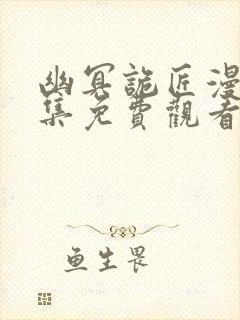 幽冥詭匠漫
集免費觀看
鱼生畏